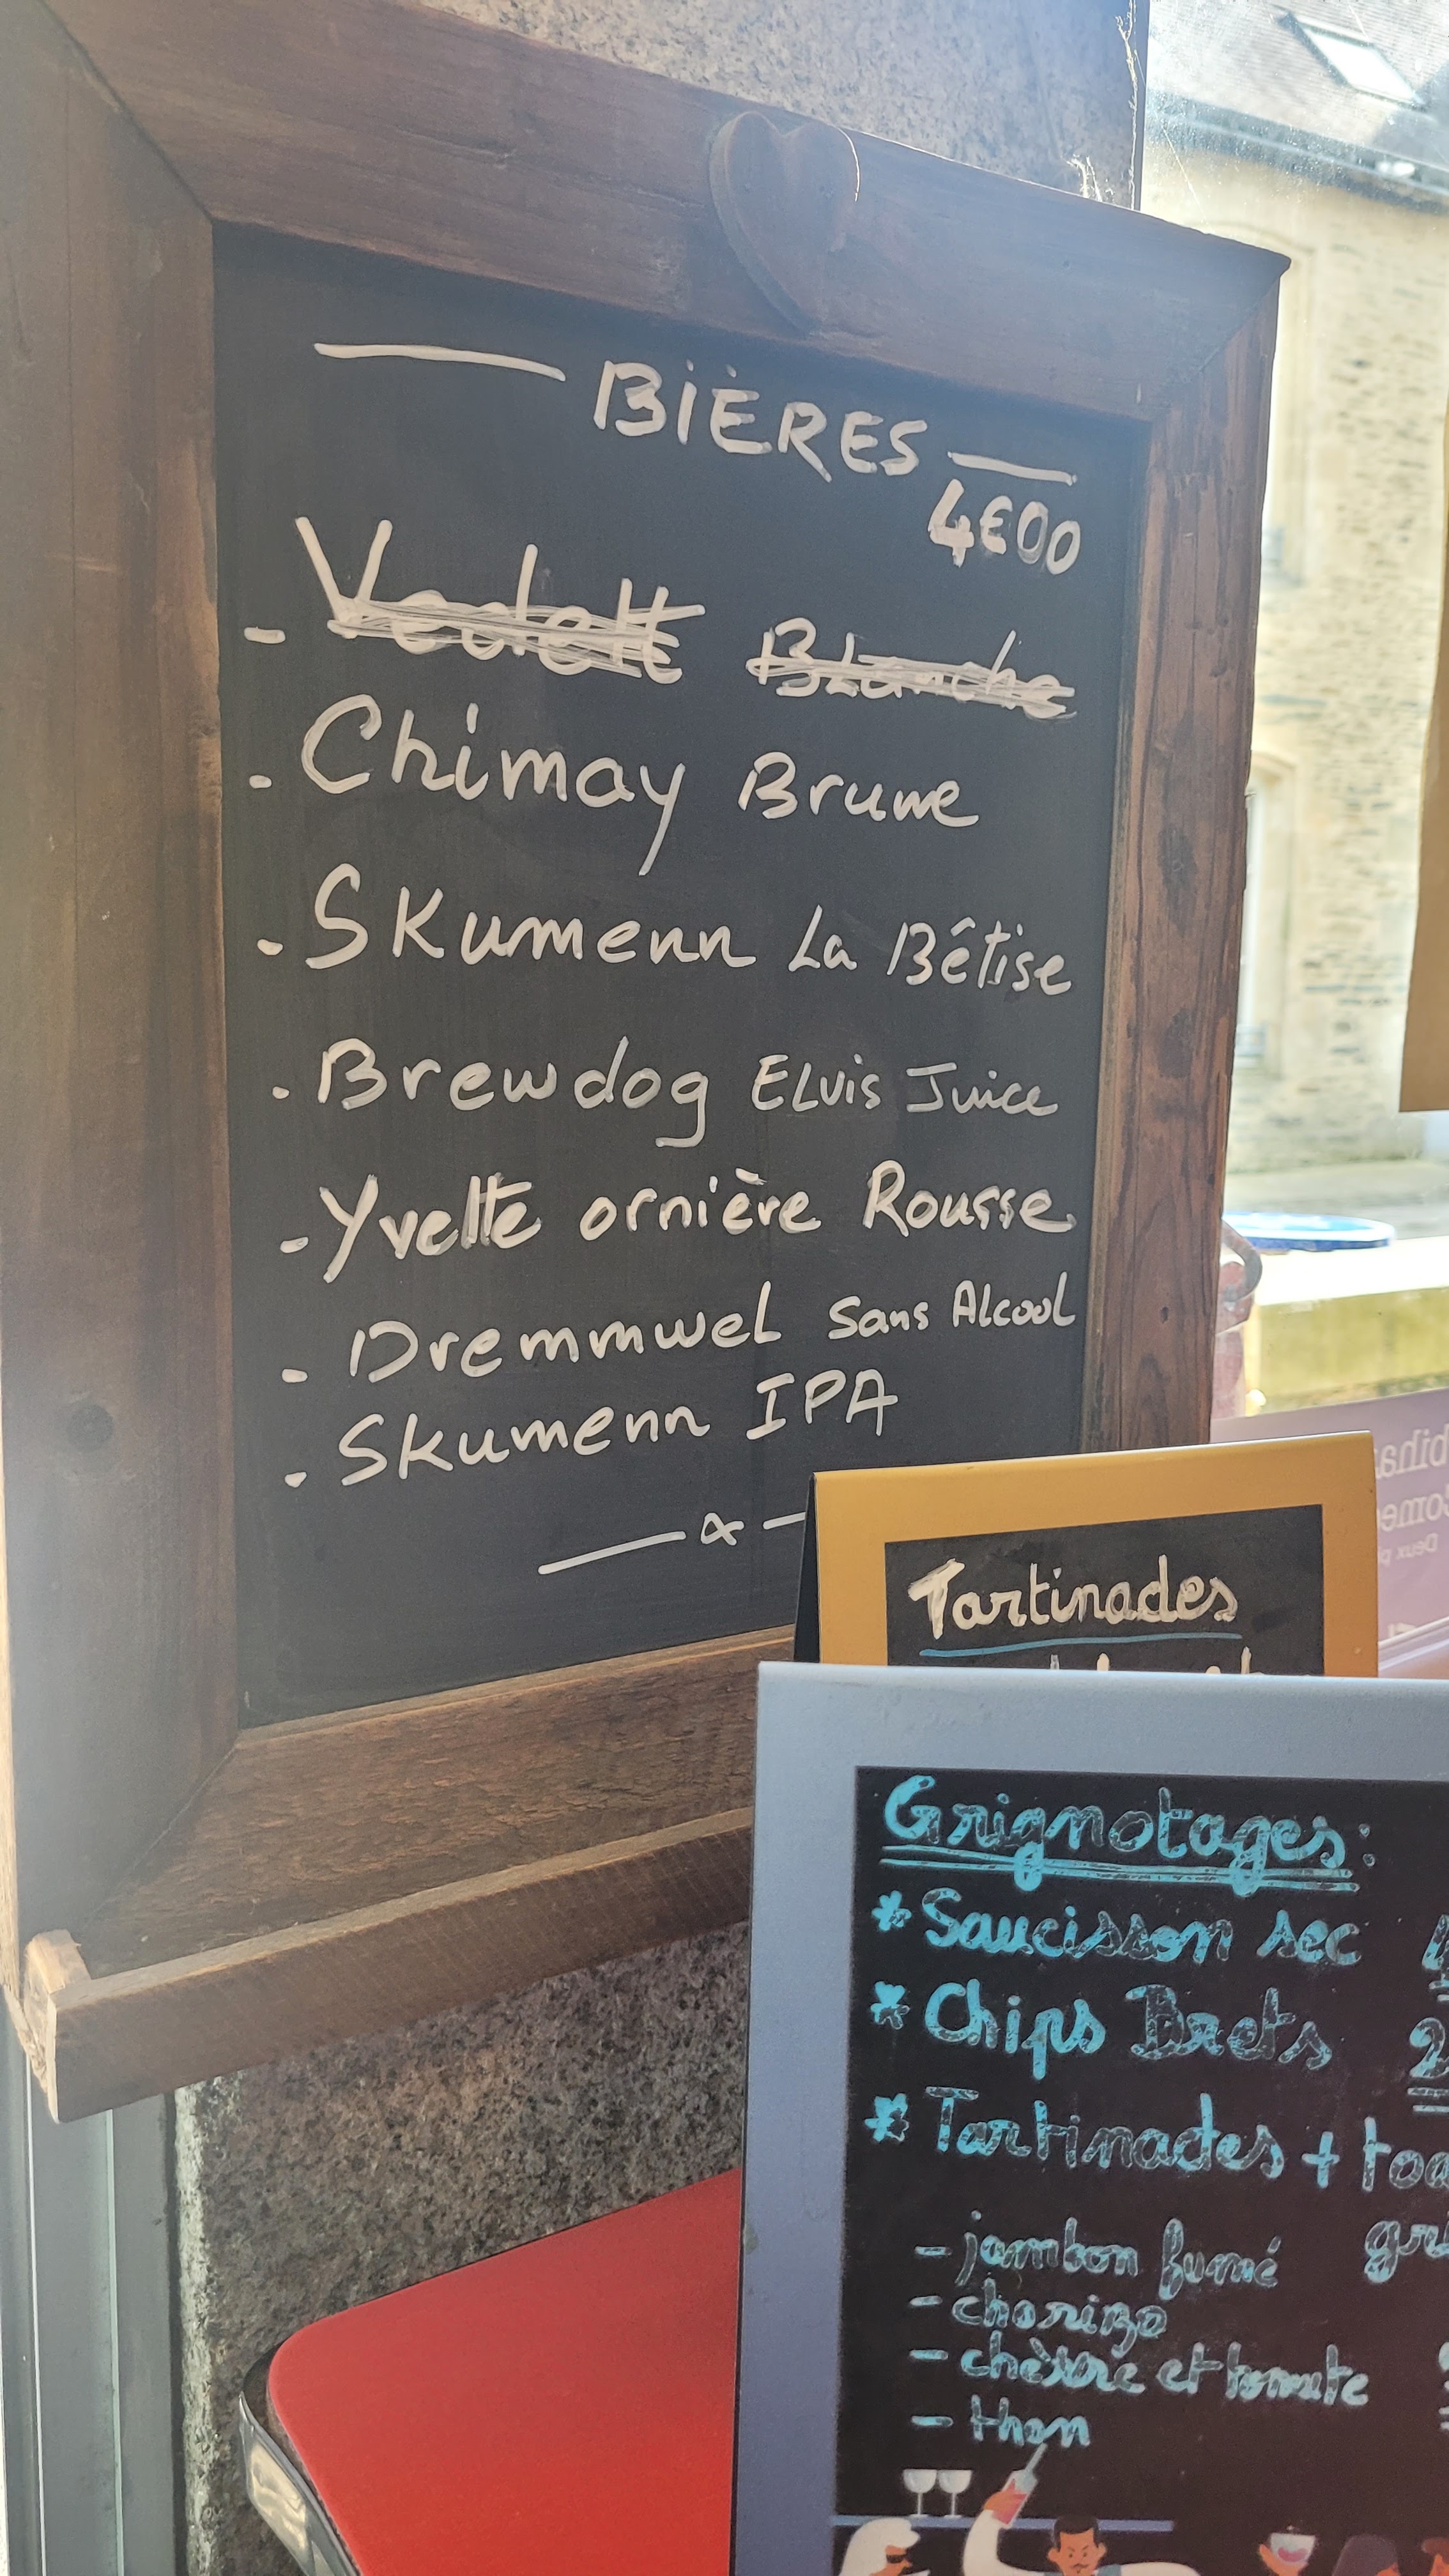 BIÈRES
4€00
- Vedett Blanche
- Chimay Brune
- Skumenn La Bêtise
- Brewdog Elvis Juice
- Yvette ornière Rousse
- Dremmwel Sans Alcool
- Skumenn IPA
Tartinades
Grignotages:
* Saucisson sec
* Chips Brets 2
* Tartinades + toa
gri
- jambon fumé
- chorizo
- chèvre et tomate
- thon